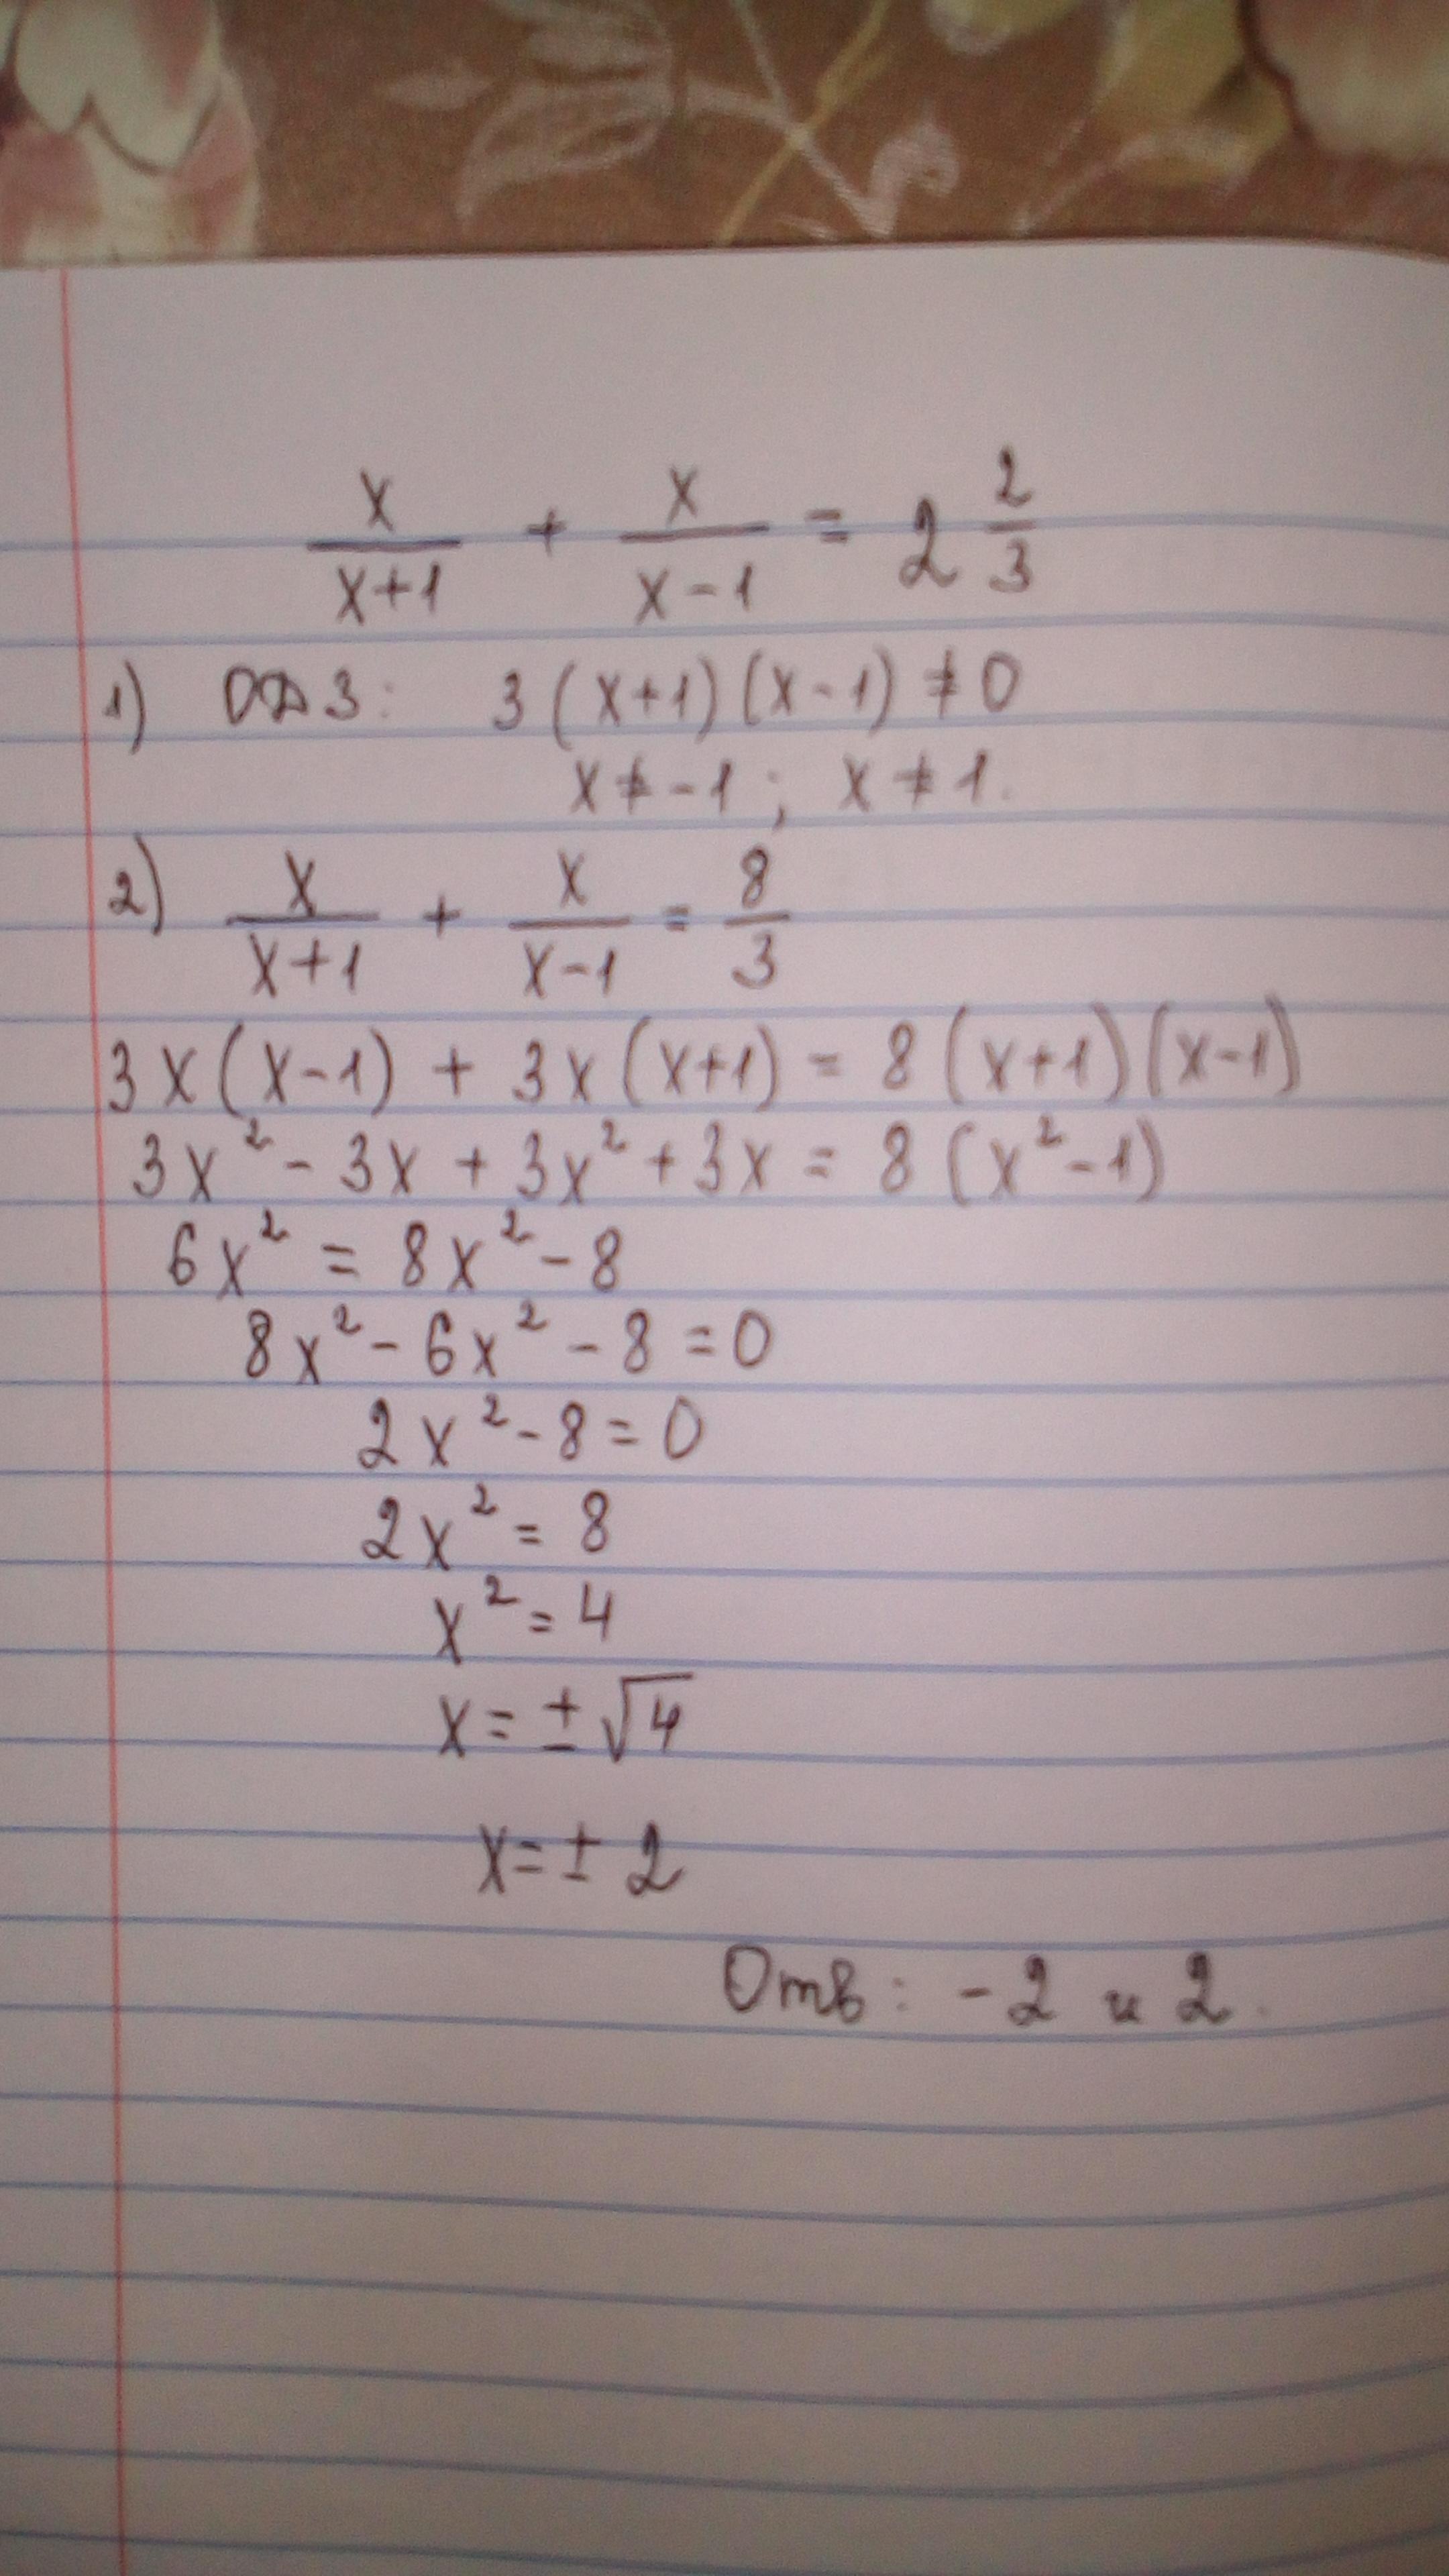 x/(x+1) + x/(x-1) = 2 2/3
1) ОДЗ: 3(x+1)(x-1) ≠ 0
x ≠ -1; x ≠ 1.
2) x/(x+1) + x/(x-1) = 8/3
3x(x-1) + 3x(x+1) = 8(x+1)(x-1)
3x² - 3x + 3x² + 3x = 8(x²-1)
6x² = 8x² - 8
8x² - 6x² - 8 = 0
2x² - 8 = 0
2x² = 8
x² = 4
x = ± √4
x = ± 2
Отв: -2 и 2.